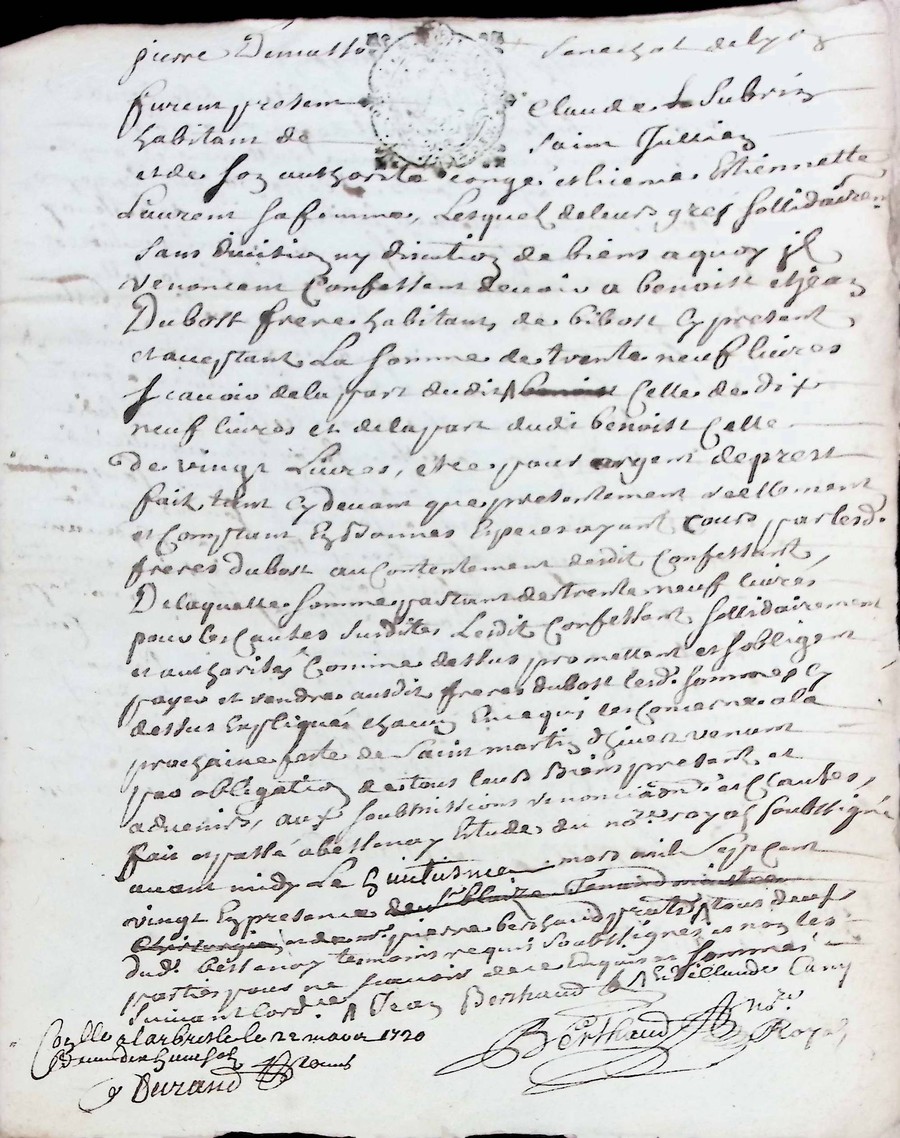 pierre Dematto Senechal de lyon
furent present Claude Subrin
habitant de Saint Jullien
et de son authorité congé et licence Estiennette
Laurent sa femme, Lesquel de leurs gres sollidairem
sans division ny discution de biens a quoy jl
renoncent Confessent devoir a benoist et jean
Dubost frere habitants de bibost Cy present
et acceptant La somme de trente neuf livres
scavoir de la part dudit Celle de dix
neuf livres et de la part dudi benoist Celle
de vingt Livres, et ce pour argent de prest
fait tant Cydevant que presentement reellement
et Comptant En bonnes Especes ayant Cours par lesd.
freres dubost au Contentement desdit Confessant,
De laquelle somme partant de trente neuf livres
pour les Causes susdites Lesdit Confessent sollidairement
et authorisés Comme dessus promettent et s'obligent
payer et rendre ausdit freres dubost lesd. sommes Cy
dessus Expliquées chacun En ce qui les Concerne a la
prochaine feste de Saint martin d'hiver venant
par obligation de tous leurs Biens present, et
advenir, aux soubmissions renonciaons et Clauses,
fait et passé a bessenay Estude du nore royal soubsigné
avant midy Le huitiesme mars mil sept cent
vingt En presence de sr blaize
Chirurgien et de me pierre berthaud tous deux
dud. bessenay temoins requis soubsignés et non les
parties pour ne scavoir de ce Enquis et sommés
suivant Lord.ce Jean Berthaud
Conlle a larbresle le 22 mars 1720 Berthaud nore
Royal
Durand